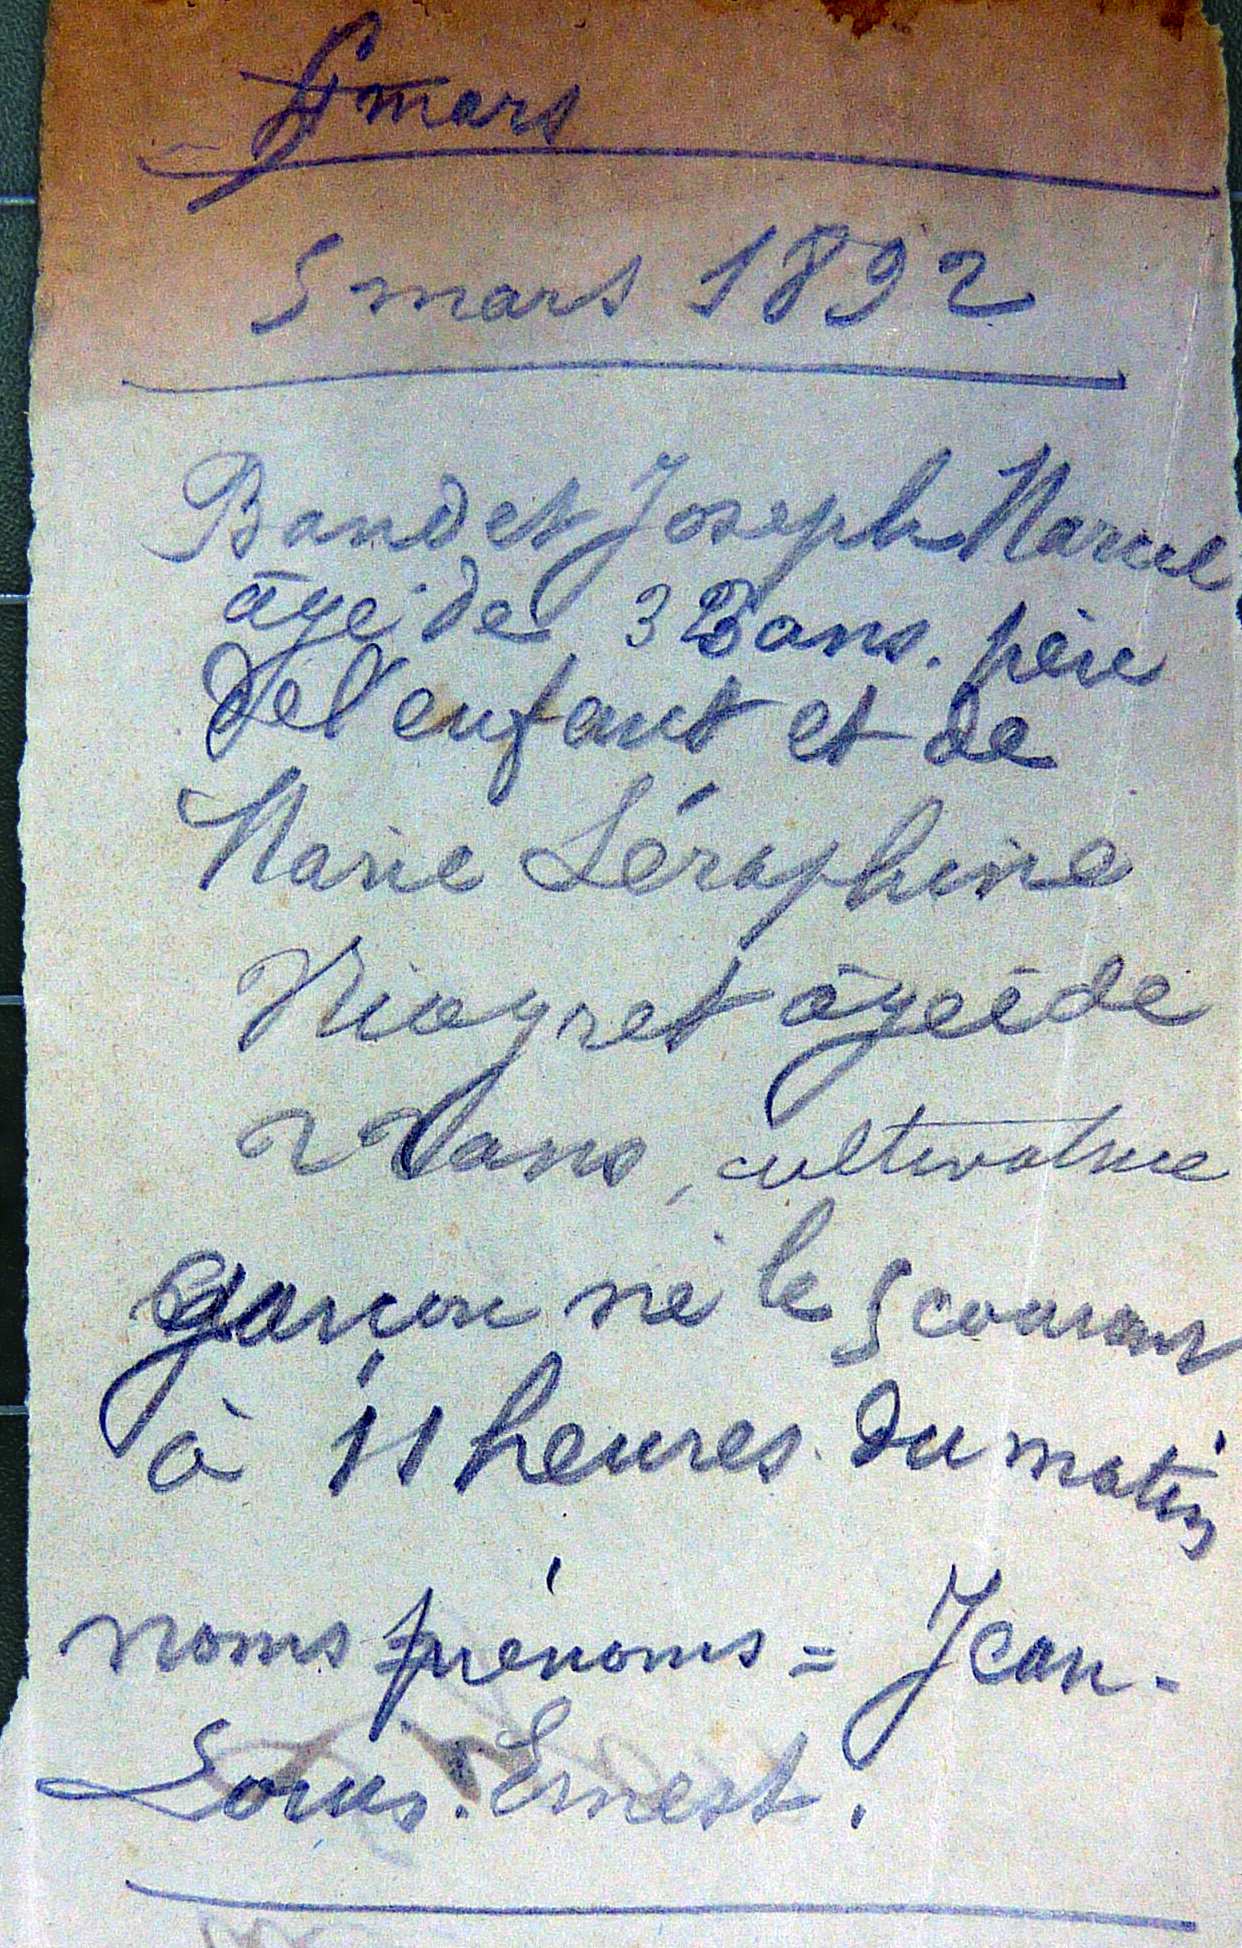 mars
5 mars 1892
Baudet Joseph Marcel
âgé de 33 ans. père
de l'enfant et de
Marie Séraphine
Niogret âgée de
22 ans, cultivatrice
garçon né le 5 courant
à 11 heures du matin
noms prénoms = Jean-
Louis. Ernest.